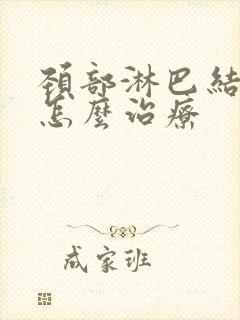 頸部淋巴結
怎麼治療
成家班